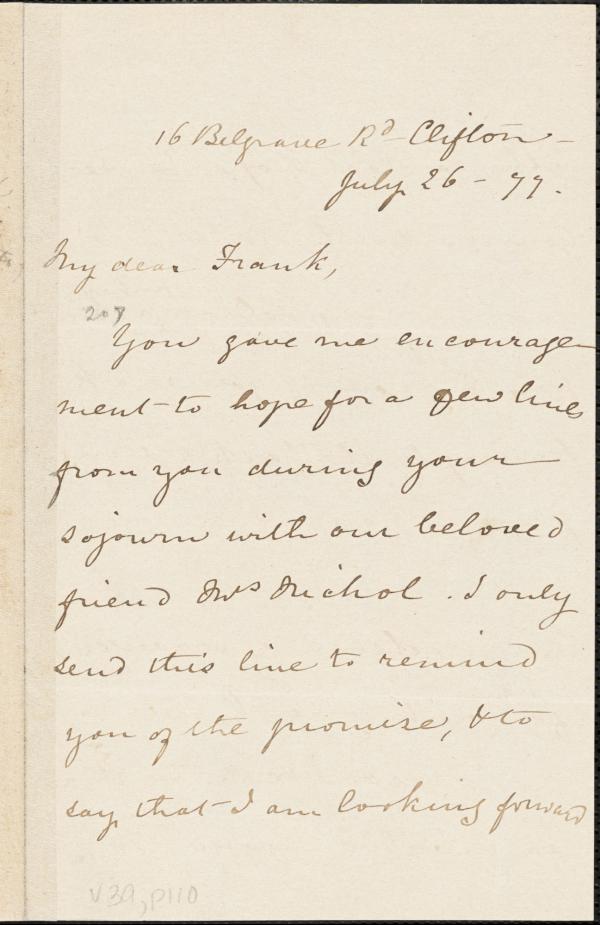 16 Belgrave Rd Clifton -
July 26 - 77.
My dear Frank,
207
You gave me encourage
ment to hope for a few lines
from you during your
sojourn with our beloved
friend Mrs Nichol. I only
send this line to remind
you of the promise, & to
say that I am looking forward
v39, p110